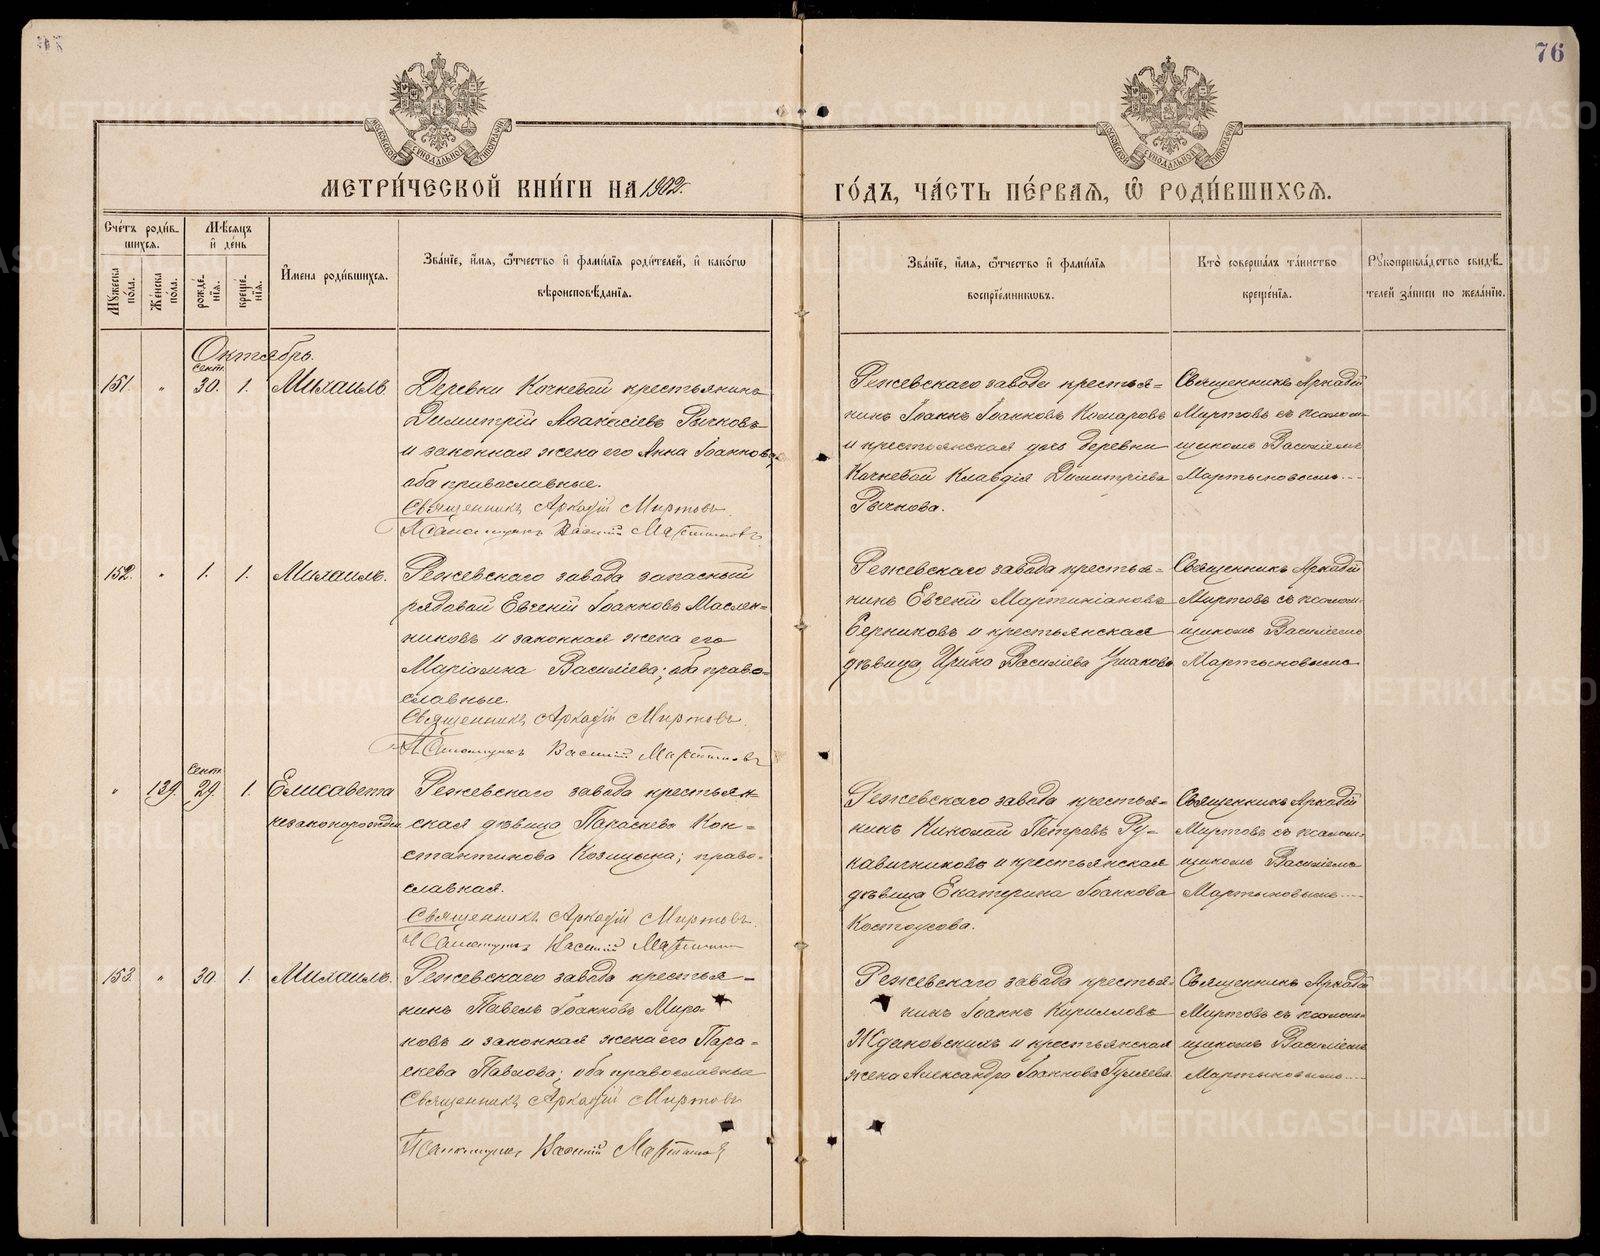 76
МЕТРИ́ЧЕСКОЙ КНИ́ГИ НА 1902 г.
ГО́ДЪ, ЧА́СТЬ ПЕ́РВАЯ, Ѽ РОДИ́ВШИХСѦ.
Сче́тъ роди́в-
шихсѧ.
Мѣ́сѧцъ
и҆ де́нь
Мꙋ́жеска по́ла.
Же́нска по́ла.
рожде́-нїѧ.
креще́-нїѧ.
И҆мена роди́вшихсѧ.
Зва́нїе, и҆́мѧ, ѻ҆́тчество и҆ фами́лїѧ роди́телей, и҆ како́гѡ
вѣроисповѣ́данїѧ.
Зва́нїе, и҆́мѧ, ѻ҆́тчество и҆ фами́лїѧ
воспрїе́мникѡвъ.
Кто̀ соверша́лъ та́инство
креще́нїѧ.
Рꙋкоприкла́дство свидѣ́-
телей за́писи по жела́нїю.
Октябрь.
151. " сент. 30. 1. Михаилъ.
Деревни Кочневой крестьянинъ
Димитрій Аѳанасіевъ Рычковъ
и законная жена его Анна Іоаннова,
оба православные.
Священникъ Аркадій Миртовъ.
Псаломщикъ Василій Мартыновъ
Режевскаго завода крестья-
нинъ Іоаннъ Іоанновъ Комаровъ
и крестьянская дочь деревни
Кочневой Клавдія Димитріева
Рычкова.
Священникъ Аркадій
Миртовъ съ псалом-
щикомъ Василіемъ
Мартыновымъ.
152. " 1. 1. Михаилъ.
Режевскаго завода запасный
рядовой Евгеній Іоанновъ Маслен-
никовъ и законная жена его
Маріамна Василіева; оба право-
славные.
Священникъ Аркадій Миртовъ.
Псаломщикъ Василій Мартыновъ
Режевскаго завода крестья-
нинъ Евгеній Мартиніановъ
Берниковъ и крестьянская
дѣвица Ирина Василіева Ушакова
Священникъ Аркадій
Миртовъ съ псалом-
щикомъ Василіемъ
Мартыновымъ
" 139. сент. 29. 1. Елисавета
незаконорожден.
Режевскаго завода крестьян-
ская дѣвица Параскева Кон-
стантинова Козицына; право-
славная.
Священникъ Аркадій Миртовъ.
Псаломщикъ Василій Мартынов
Режевскаго завода крестья-
нинъ Николай Петровъ Ру-
кавичниковъ и крестьянская
дѣвица Екатерина Іоаннова
Костоусова.
Священникъ Аркадій
Миртовъ съ псалом-
щикомъ Василіемъ
Мартыновымъ.
153. " 30. 1. Михаилъ.
Режевскаго завода крестья-
нинъ Павелъ Іоанновъ Миро-
новъ и законная жена его Пара-
скева Павлова; оба православные
Священникъ Аркадій Миртовъ
Псаломщикъ Василій Мартыновъ
Режевскаго завода крестья-
нинъ Іоаннъ Кирилловъ
Ждановскихъ и крестьянская
жена Александра Іоаннова Гуляева
Священникъ Аркадій
Миртовъ съ псалом-
щикомъ Василіемъ
Мартыновымъ.